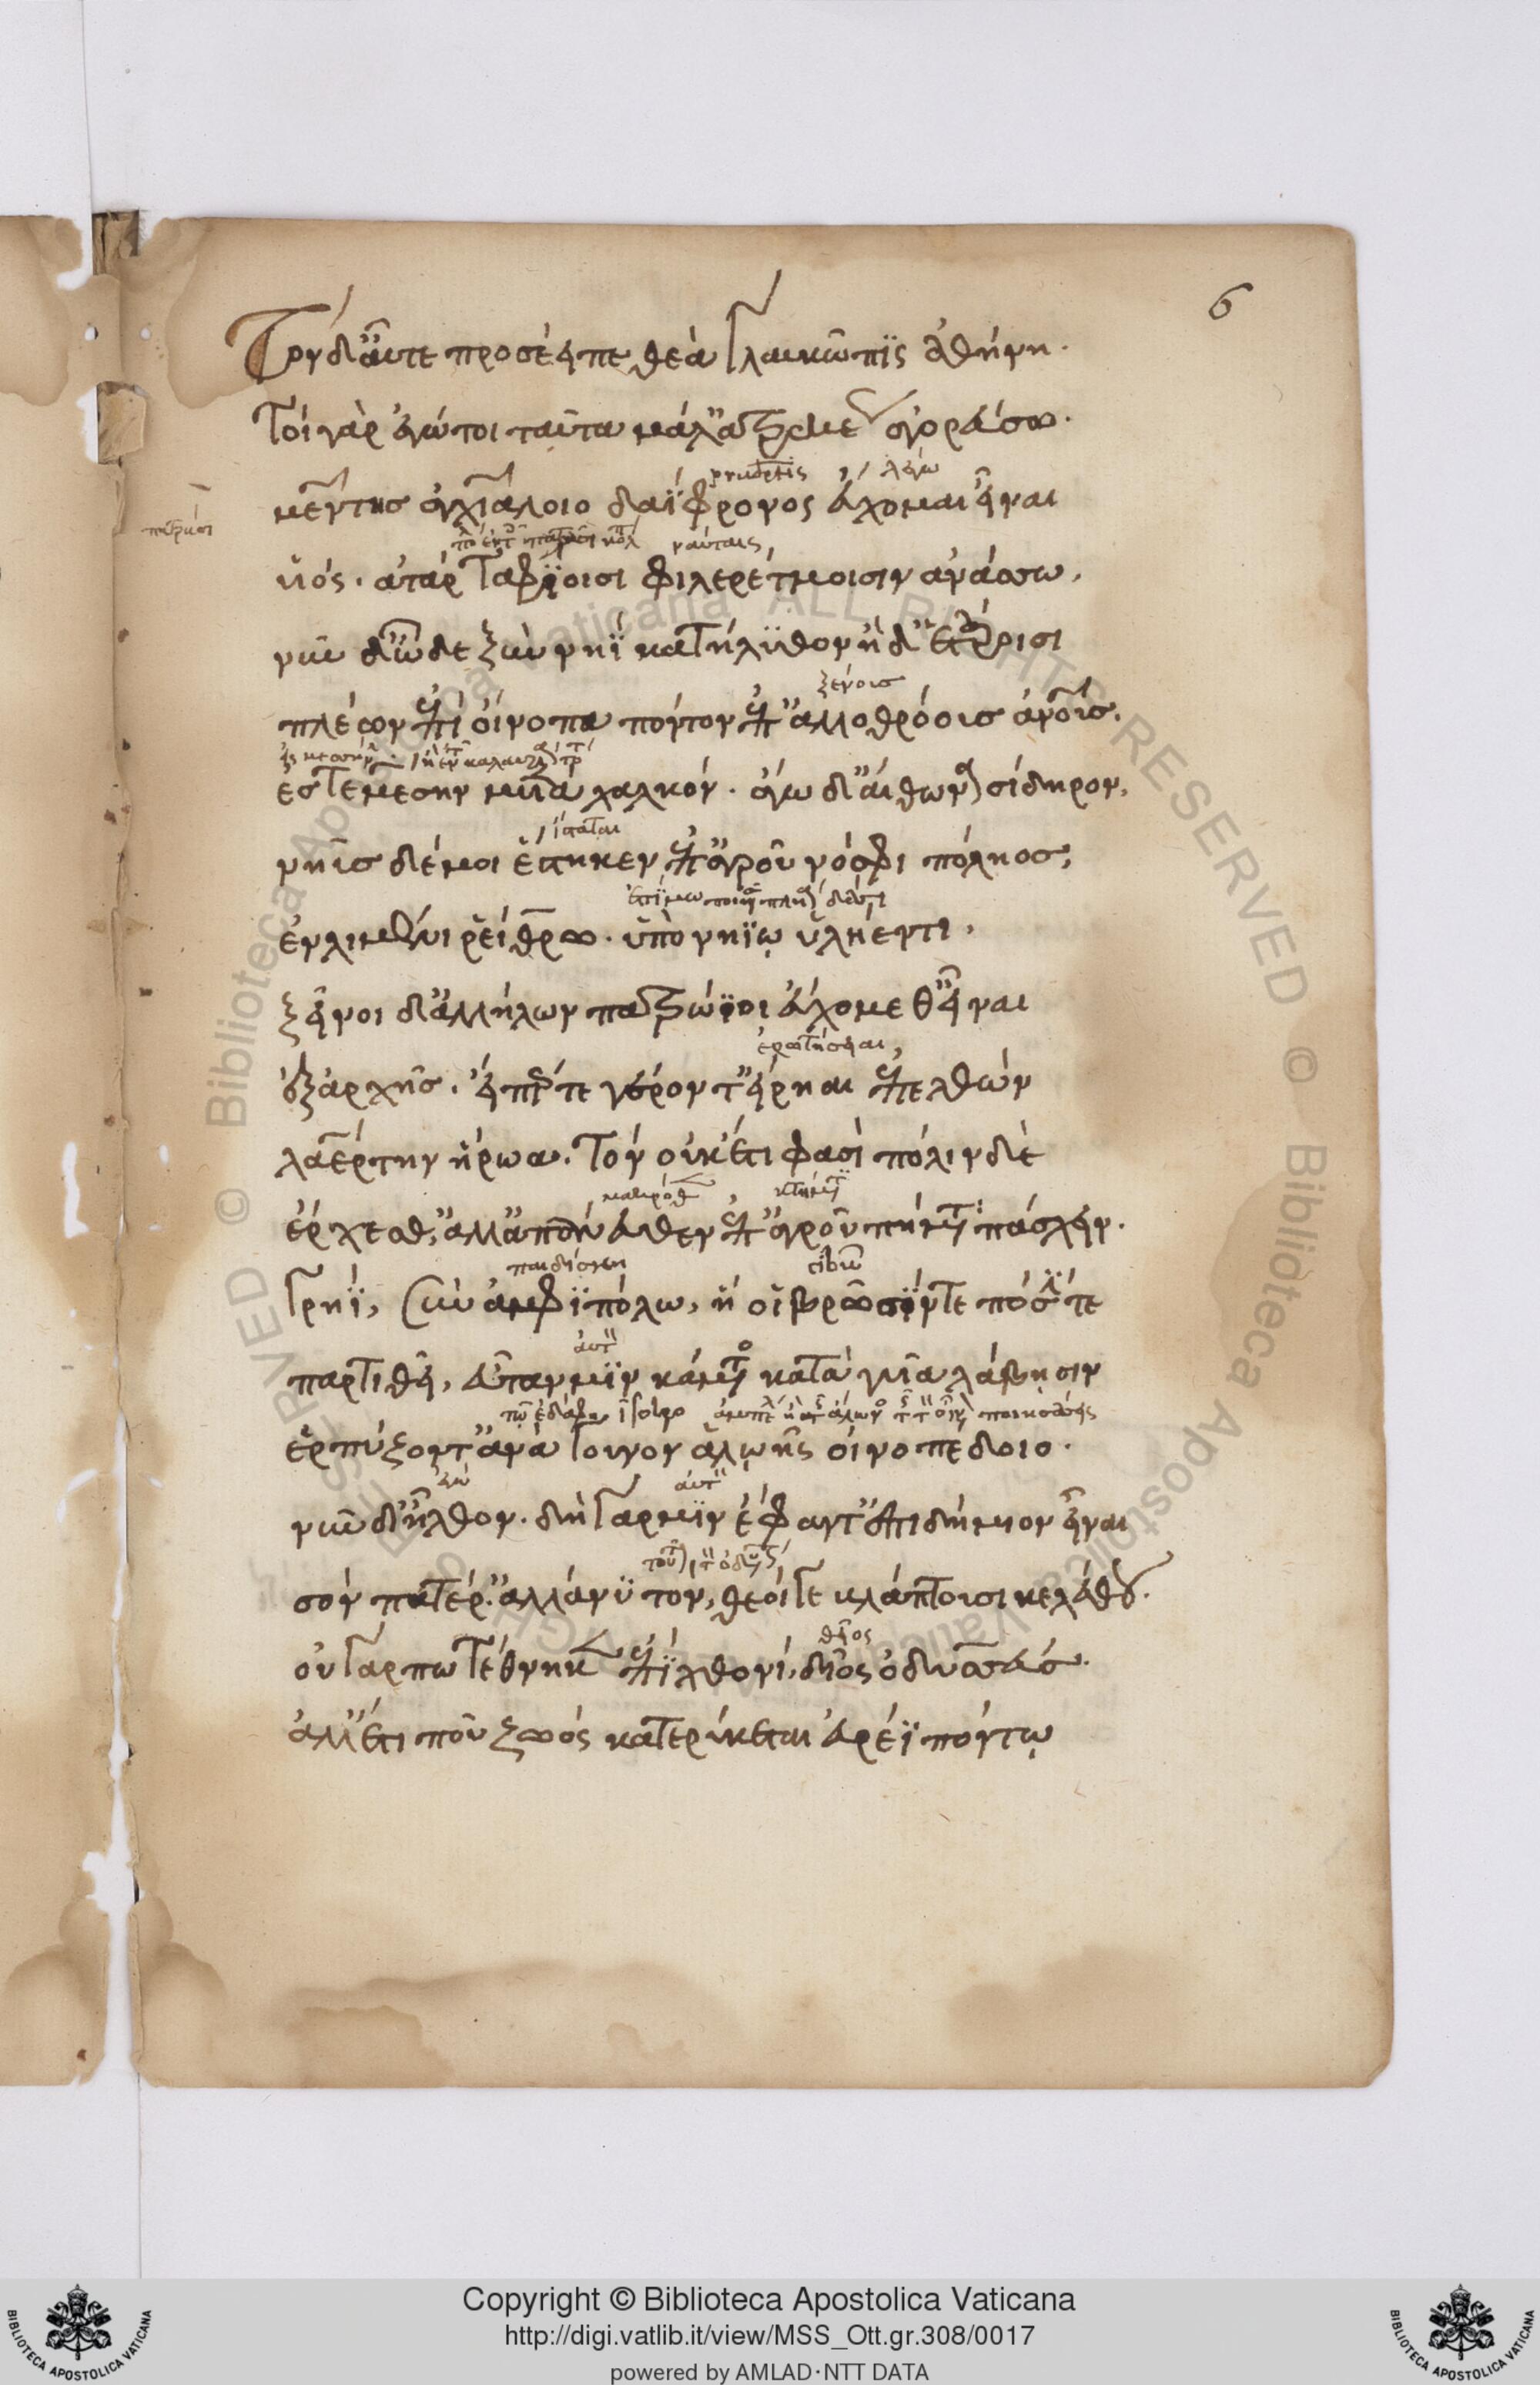 6
Τὸν δ' αὖτε προσέειπε θεὰ γλαυκῶπϊς ἀθήνη.
Τοὶ γὰρ ἐγώ τοι ταῦτα μάλ' ἀτρεκέως ἀγορεύσω.
prudētis λέγω
μέντης ἀγχιάλοιο δαΐφρονος εὔχομαι εἶναι
ναύταις
υἱός. ἀτὰρ Ταφίοισι φιλερέτμοισιν ἀνάσσω,
νῦν δ' ὧδε ξὺν νηῒ κατήλϋθον ἠδ' ἑτάροισι
ξένοις
πλέων ἐπὶ οἴνοπα πόντον ἐπ' ἀλλοθρόους ἀνους.
ἐς τεμεσην μετα χαλκόν. ἄγω δ' αἴθωνα σίδηρον,
ἵσταται
νηῦς δέ μοι ἕστηκεν ἐπ' ἀγροῦ νόσφι πόληος,
ἐν λιμένι ῥείθρω. ὑπὸ νηΐῳ ὑλήεντι,
ξεῖνοι δ' ἀλλήλων πατρώϊοι εὐχόμεθ' εἶναι
ἐρωτήσειας
ἐξ ἀρχῆς. εἴπερ τε γέροντ' εἴρηαι ἐπελθὼν
λαέρτην ἥρωα. Τὸν οὐκέτι φασὶ πόλιν δὲ
ἔρχεσθ', ἀλλ' ἀπάνευθεν ἐπ' ἀγροῦ πήματα πάσχειν.
παιδίσκη cibū
γρηῒ, σὺν ἀμφϊπόλω, ἥ οἱ βρῶσίν τε πόσιν τε
παρτιθεῖ, εὖτ' ἄν μϊν κάματος κατὰ γυῖα λάβησιν
ἑρπύζοντ' ἀνὰ γουνὸν ἀλωῆς οἰνοπέδοιο.
ἐγὼ
νῦν δ' ἦλθον. δὴ γάρ μϊν ἔφαντ' ἐπιδήμιον εἶναι
σὸν πατέρ'. ἀλλά νϋ τον, θεοί γε βλάπτουσι κελεύθου.
θεῖος
οὐ γάρ πω τέθνηκεν ἐπὶ χθονί, δῖος ὀδυσσεύς.
ἀλλ' ἔτι που ζωὸς κατερύκεται εὐρέϊ πόντῳ
Copyright © Biblioteca Apostolica Vaticana
http://digi.vatlib.it/view/MSS_Ott.gr.308/0017
powered by AMLAD·NTT DATA